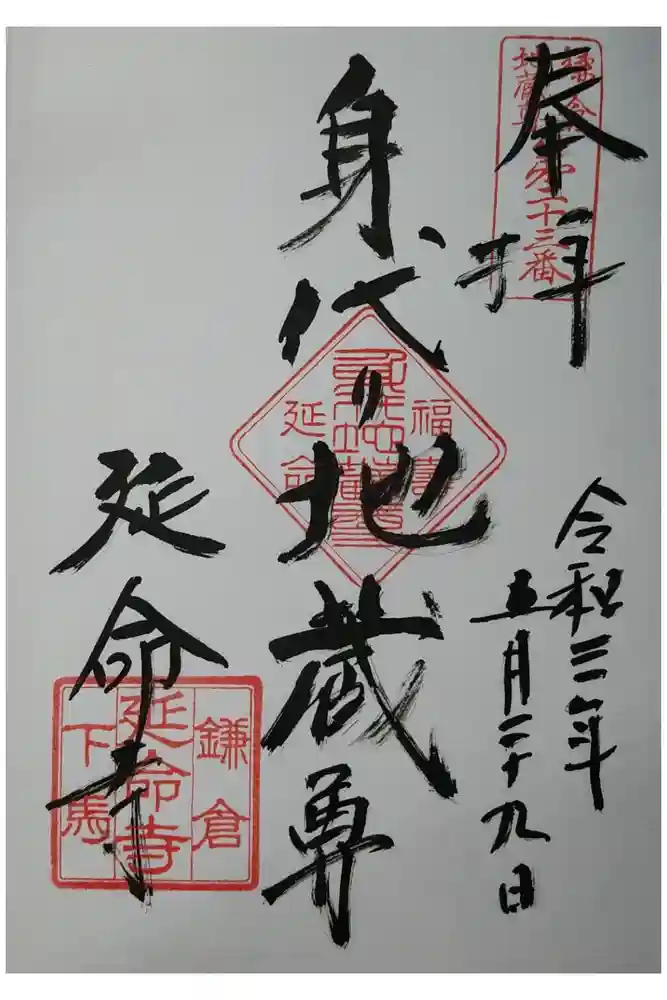 奉拝
鎌倉
地蔵尊第二十三番
令和三年
五月二十九日
身代り地蔵尊
福寿
延命
延命寺
鎌倉
延命寺
下馬